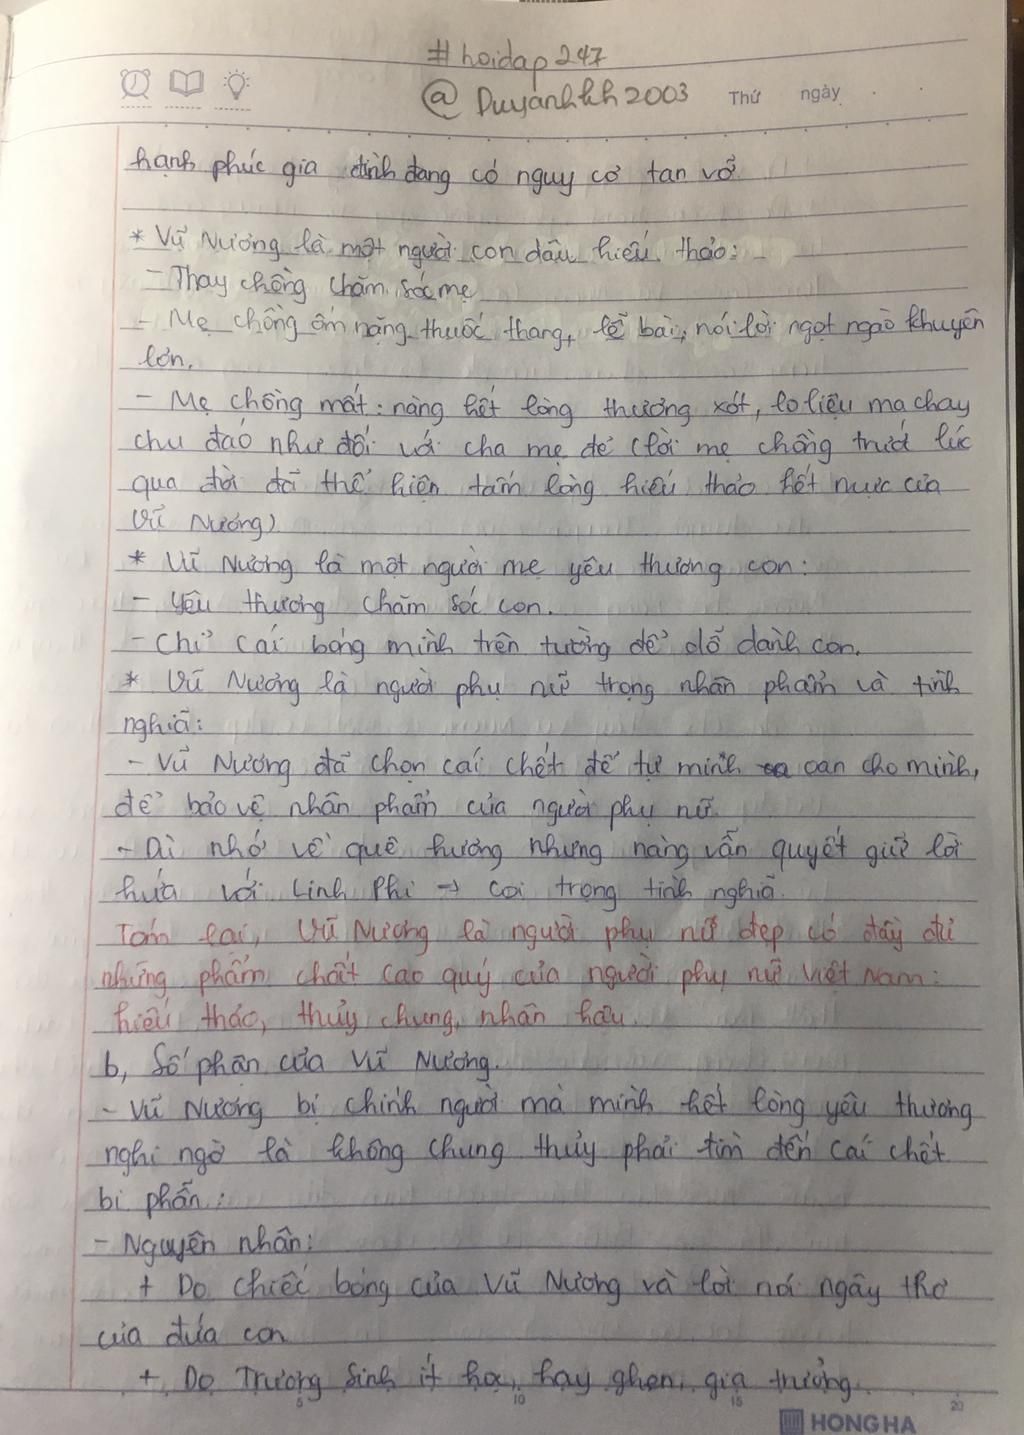 #hoidap247
@Duyanhkh2003
Thứ ngày
hạnh phúc gia đình đang có nguy cơ tan vỡ.
* Vũ Nương là một người con dâu hiếu thảo:
- Thay chồng chăm sóc mẹ
- Mẹ chồng ốm nặng thuốc thang, lễ bái, nói lời ngọt ngào khuyên
lơn.
- Mẹ chồng mất: nàng hết lòng thương xót, lo liệu ma chay
chu đáo như đối với cha mẹ đẻ (lời mẹ chồng trước lúc
qua đời đã thể hiện tấm lòng hiếu thảo hết mực của
Vũ Nương)
* Vũ Nương là một người mẹ yêu thương con:
- Yêu thương chăm sóc con.
- Chỉ cái bóng mình trên tường để dỗ dành con.
* Vũ Nương là người phụ nữ trọng nhân phẩm và tình
nghĩa:
- Vũ Nương đã chọn cái chết để tự minh oan cho mình,
để bảo vệ nhân phẩm của người phụ nữ.
- Dù nhớ về quê hương nhưng nàng vẫn quyết giữ lời
hứa với Linh Phi → coi trọng tình nghĩa.
Tóm lại, Vũ Nương là người phụ nữ đẹp có đầy đủ
những phẩm chất cao quý của người phụ nữ Việt Nam:
hiếu thảo, thủy chung, nhân hậu.
b, Số phận của Vũ Nương.
- Vũ Nương bị chính người mà mình hết lòng yêu thương
nghi ngờ là không chung thủy phải tìm đến cái chết
bi phẫn:
- Nguyên nhân:
+ Do chiếc bóng của Vũ Nương và lời nói ngây thơ
của đứa con
+ Do Trương Sinh ít học, hay ghen, gia trưởng.
5 10 15 20
HONG HA